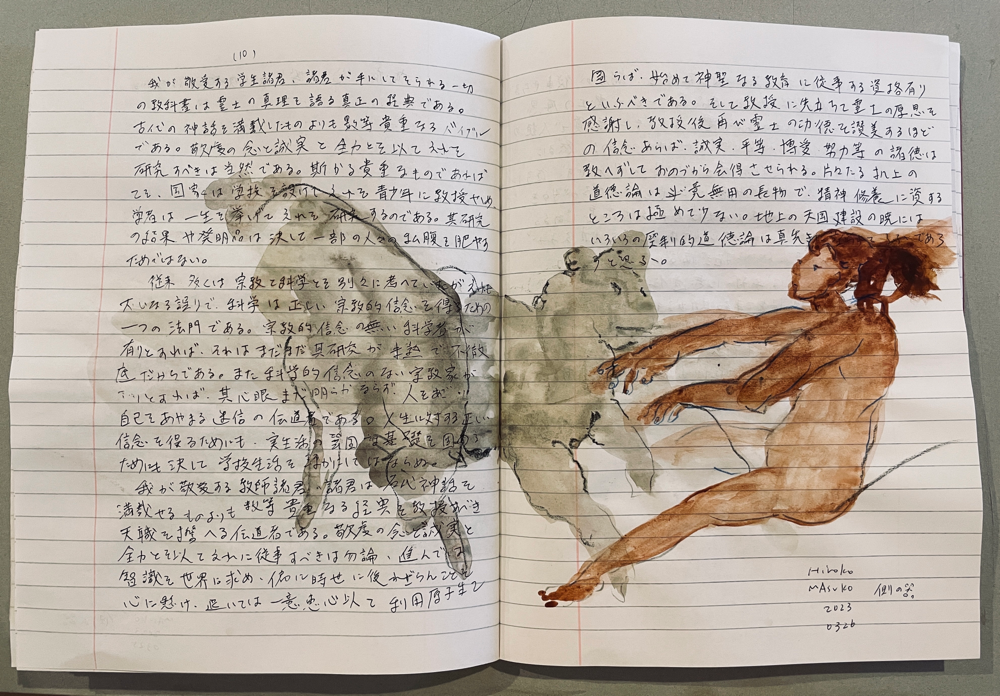 (10)
我が敬愛する学生諸君、諸君が手にしてをられる一切
の教科書は霊土の真理を語る真正の経典である。
古代の神話を満載したものよりも数等貴重なるバイブル
である。敬虔の念と誠実と全力とを以て之れを
研究すべきは当然である。斯かる貴重なものであれば
こそ、国家は学校を設けて之を青少年に教授せしめ
学者は一生を挙げて之れを研究するのである。其研究
の結果や発明品は決して一部の人々の私腹を肥やす
ためではない。
従来多くは宗教と科学とを別々に考へていたが之れは
大いなる誤りで、科学は正しい宗教的信念を得るための
一つの法門である。宗教的信念の無い科学者が
有りとすれば、それはまだまだ其研究が未熟で不徹
底だからである。また科学的信念のない宗教家が
ありとすれば、其心眼まだ明らかならず、人をあやまり
自己をあやまる迷信の伝道者である。人生に対する正しい
信念を得るためにも、実生活の基礎を固める
ためにも決して学校生活をおろそかにしてはならぬ。
我が敬愛する教師諸君、諸君は古代神話を
満載せるものよりも数等貴重なる経典を教授すべき
天職を担へる伝道者である。敬虔の念と誠実と
全力とを以て之れに従事すべきは勿論、進んでは
智識を世界に求め、伯に時世に後れざらんことを
心に懸け、退いては一意専心以て利用厚生を
図らば、始めて神聖なる教育に従事する資格有り
といふべきである。そして教授に先立ちて霊土の厚恩を
感謝し、教授後再び霊土の功徳を讃美するほど
の信念あらば、誠実、平等、博愛、努力等の諸徳は
教へずしておのづから会得させられる。片々たる机上の
道徳論は畢竟無用の長物で、精神修養に資する
ところは極めて少ない。地上の天国建設の暁には
いろいろの功利的道徳論は真先き
である
と思ふ。
Hiroko
mAsuko
2023
0326